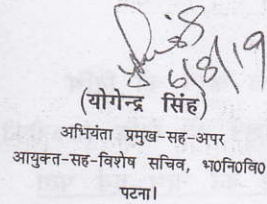 6/8/19
(योगेन्द्र सिंह)
अभियंता प्रमुख-सह-अपर
आयुक्त-सह-विशेष सचिव, भ0नि0वि0
पटना।